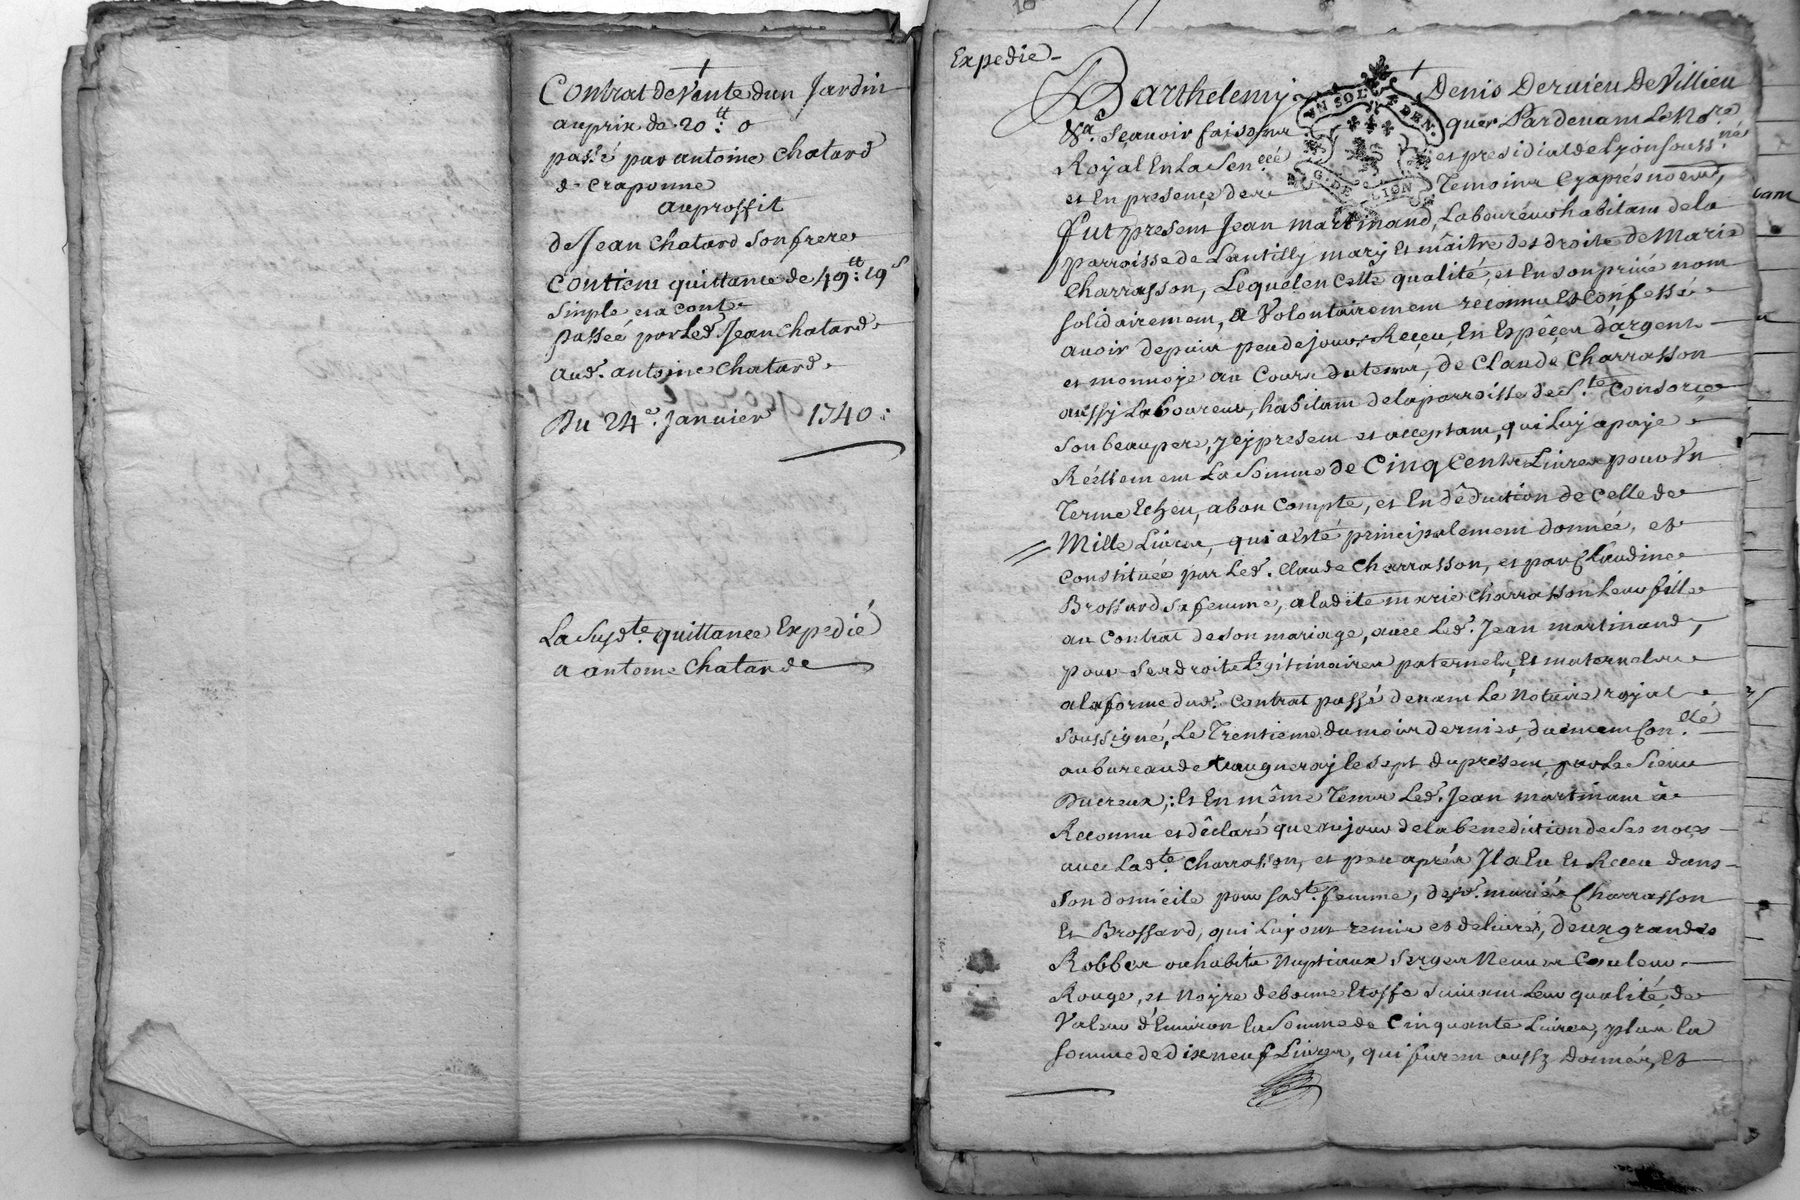 Contrat de Vente dun Jardin
au prix de 20ᵗᵗ: 0
passé par antoine Chatard
de craponne
au proffit
de Jean Chatard Son frere
Contient quittance de 49ᵗᵗ: 19ˢ
Simple et a conte
passée par Led. Jean Chatard
aud. antoine Chatard.
Du 24e. Janvier 1740:
La Susdte. quittance Expedié
a antoine Chatarde
Expedié
Barthelemy Denis Dervieu De Villieu
Va. Sçavoir faisons que Pardevant Le Nore
Royal En La Sen.ccé et presidial de Lyon souss.né
et En presence de Temoins Cyaprés nommés,
Fut present Jean martinand, Laboureur habitant de la
parroisse de Lentilly mary et maitre des droits de Marie
Charrasson, Lequel en Cette qualité, et En son privé nom
solidairement, a Volontairement reconnu et confessé
avoir depuis peu de jours Reçeu, En Espêces d'argent
et monnoye au Cours du tems, de Claude Charrasson
aussy Laboureur, habitant de la parroisse de Ste. Consorce
son beaupere, jcy present et acceptant, qui Luy a payé
Réellement La Somme de Cinq Cents Livres pour Un
Terme Echeu, a bon Compte, et En dêduction de Celle de
Mille Livres, qui a esté principalement donnée, et
Constituée par Led. Claude Charrasson, et par Claudine
Brossard sa femme, a ladite marie Charrasson Leur fille
au Contrat de son mariage, avec Led. Jean martinand,
pour Ses droits Legitimaires paternels, Et maternels
a la forme dud. Contrat passé devant Le Notaire royal
soussigné, Le Trentieme du mois dernier, duëment Con.ollé
au bureau de Vaugneray le sept du present, par Le Sieur
Ducreux; Et En même Tems Led. Jean martinand a
Reconnu et dêclaré que au jour de la benediction de Ses noces
avec Ladte. Charrasson, et peu aprés Il a Eu et Reçeu dans
Son domicile pour Sadte. femme, desd. mariés Charrasson
Et Brossard, qui Luy ont remis et delivré, deux grandes
Robbes ou habits Nuptiaux Serges Neuves Couleur
Rouge, et Noire de bonne Etoffe suivant Leur qualité de
Valeur d'Environ la Somme de Cinquante Livres, plus la
somme de dix neuf Livres, qui furent aussy Donnés, Et